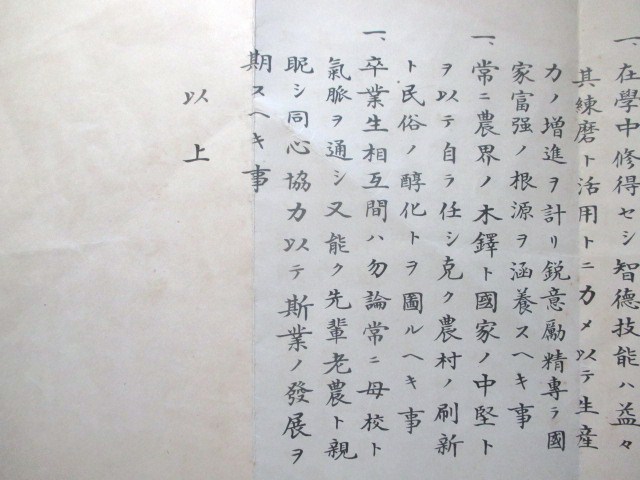 一、在學中修得セシ智德技能ハ益々
其練磨ト活用トニカメ以テ生産
力ノ增進ヲ計リ銳意勵精專ラ國
家富强ノ根源ヲ涵養スヘキ事
一、常ニ農界ノ木鐸ト國家ノ中堅ト
ヲ以テ自ラ任シ克ク農村ノ刷新
ト民俗ノ醇化トヲ圖ルヘキ事
一、卒業生相互間ハ勿論常ニ母校ト
氣脈ヲ通シ又能ク先輩老農ト親
眤シ同心協力以テ斯業ノ發展ヲ
期スヘキ事
以上